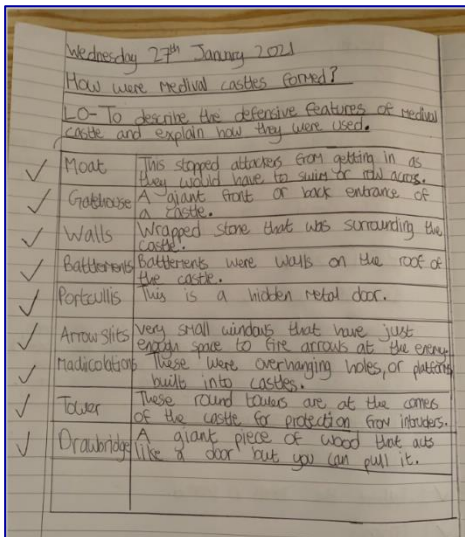 Wednesday 27th January 2021
How were Medival castles formed?
LO-To describe the defensive features of Medival
castle and explain how they were used.
Moat This stopped attackers from getting in as
they would have to swim or row acros.
Gatehouse A giant front or back entrance of
a castle.
Walls Wrapped stone that was surrounding the
castle.
Battlements Battlements were walls on the roof of
the castle.
Portcullis This is a hidden metal door.
Arrowslits Very small windows that have just
enough space to fire arrows at the enemy
Madicolations These were overhanging holes, or platforms
built into castles.
Tower These round towers are at the corners
of the castle for protection from intruders.
Drawbridge A giant piece of wood that acts
like a door but you can pull it.